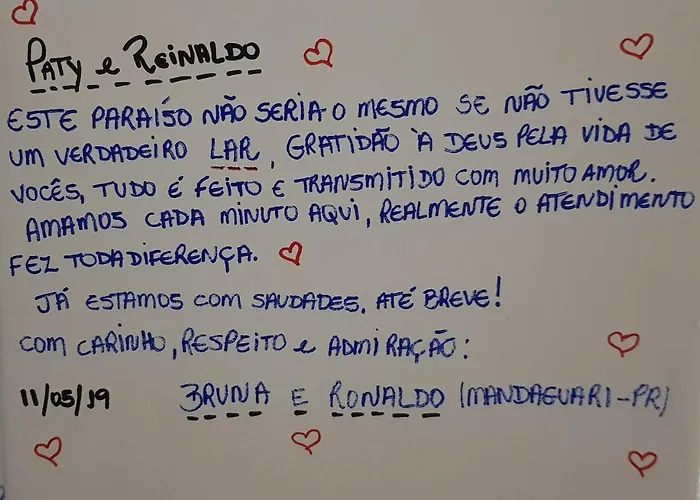 PATY e REINALDO
ESTE PARAÍSO NÃO SERIA O MESMO SE NÃO TIVESSE
UM VERDADEIRO LAR, GRATIDÃO À DEUS PELA VIDA DE
VOCÊS, TUDO É FEITO E TRANSMITIDO COM MUITO AMOR.
AMAMOS CADA MINUTO AQUI, REALMENTE O ATENDIMENTO
FEZ TODA DIFERENÇA.
JÁ ESTAMOS COM SAUDADES, ATÉ BREVE!
COM CARINHO, RESPEITO e ADMIRAÇÃO:
11/05/19 BRUNA E RONALDO (MANDAGUARI-PR)